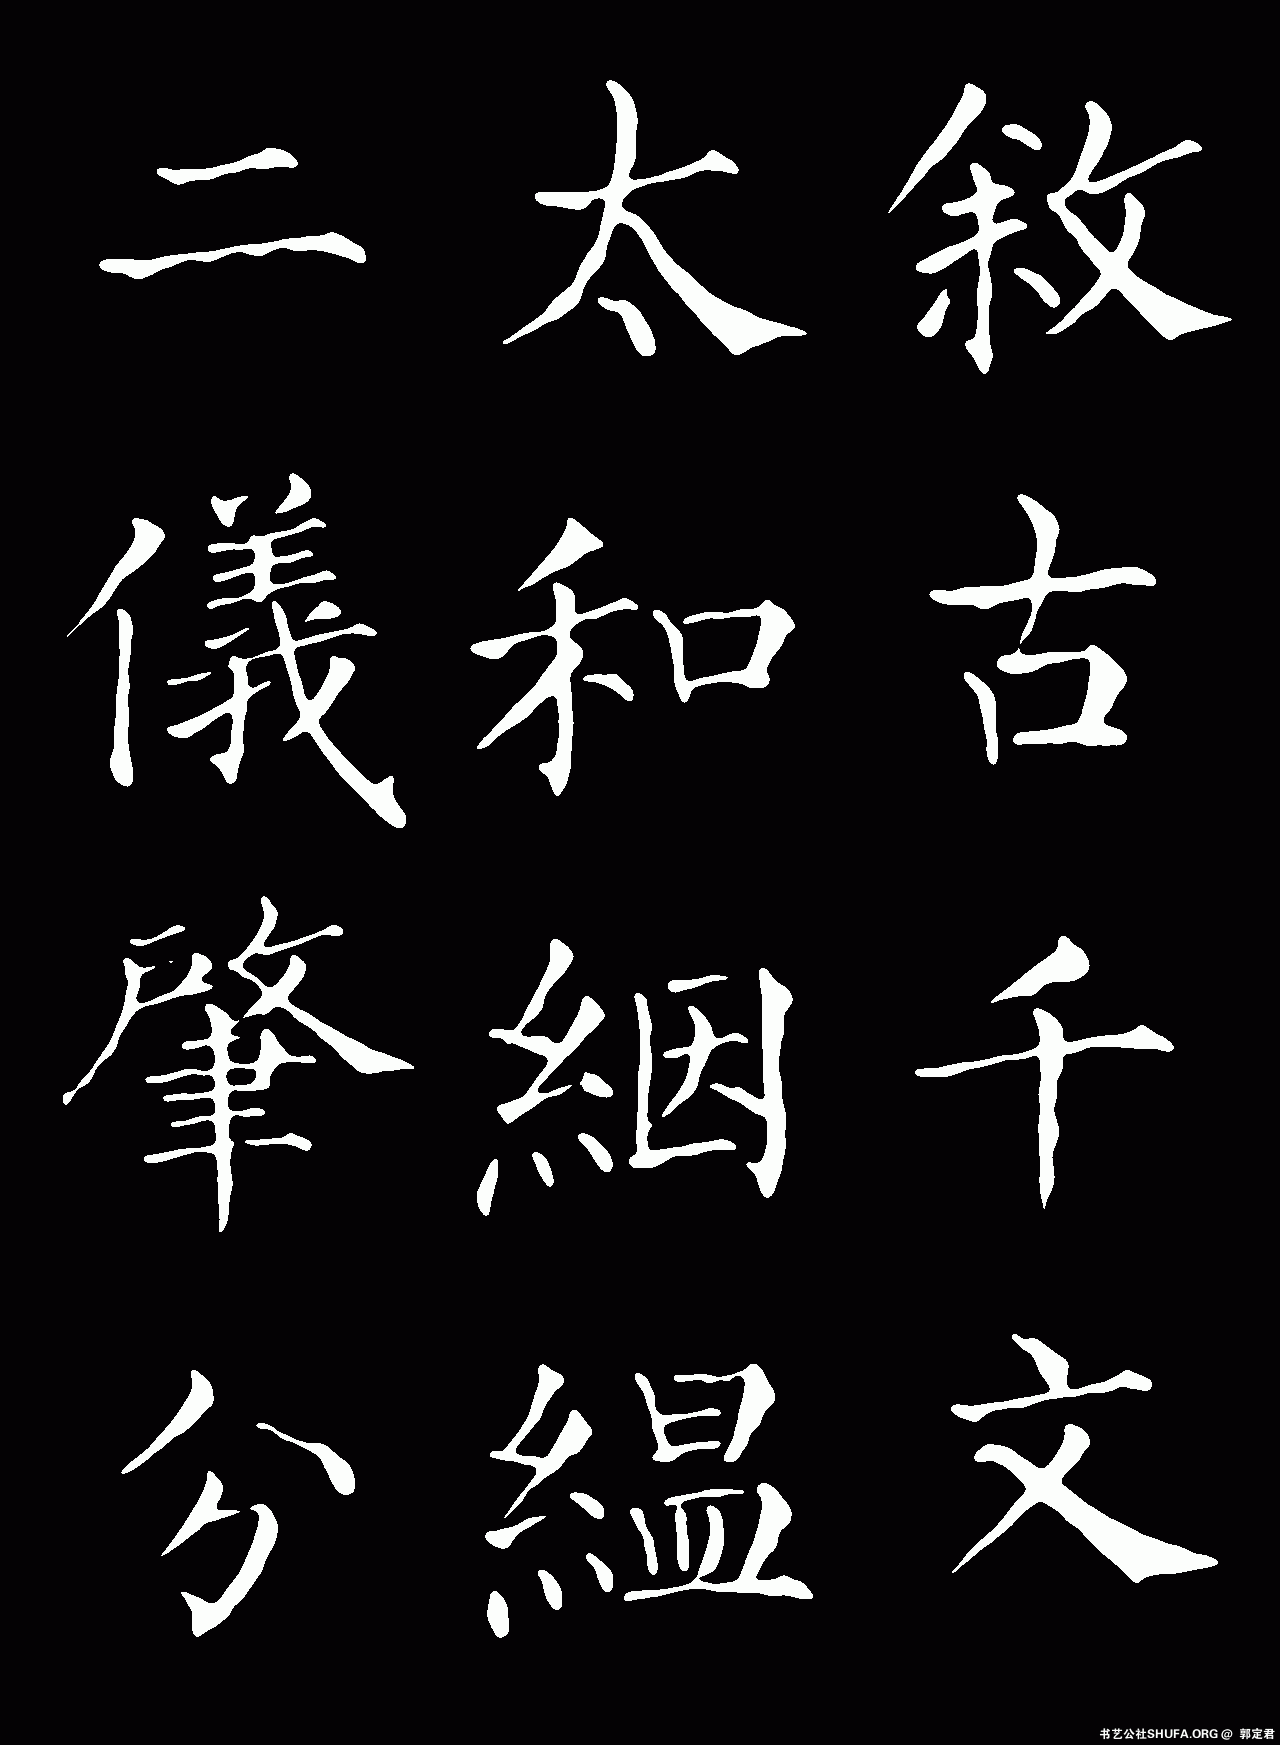 敘古千文
太和絪縕
二儀肇分
书艺公社SHUFA.ORG @ 郭定君